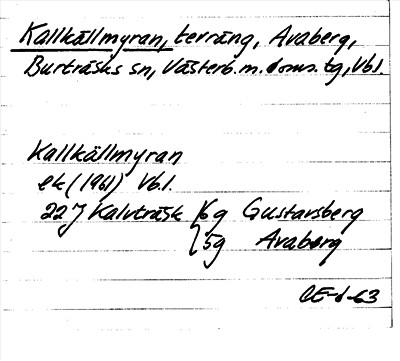 Kallkällmyran, terräng, Avaberg,
Burträsks sn, Västerb.m.doms.tg, Vbl.
Kallkällmyran
ek (1961) Vbl.
22 J Kalvträsk 6g Gustavsberg
5g Avaberg
63